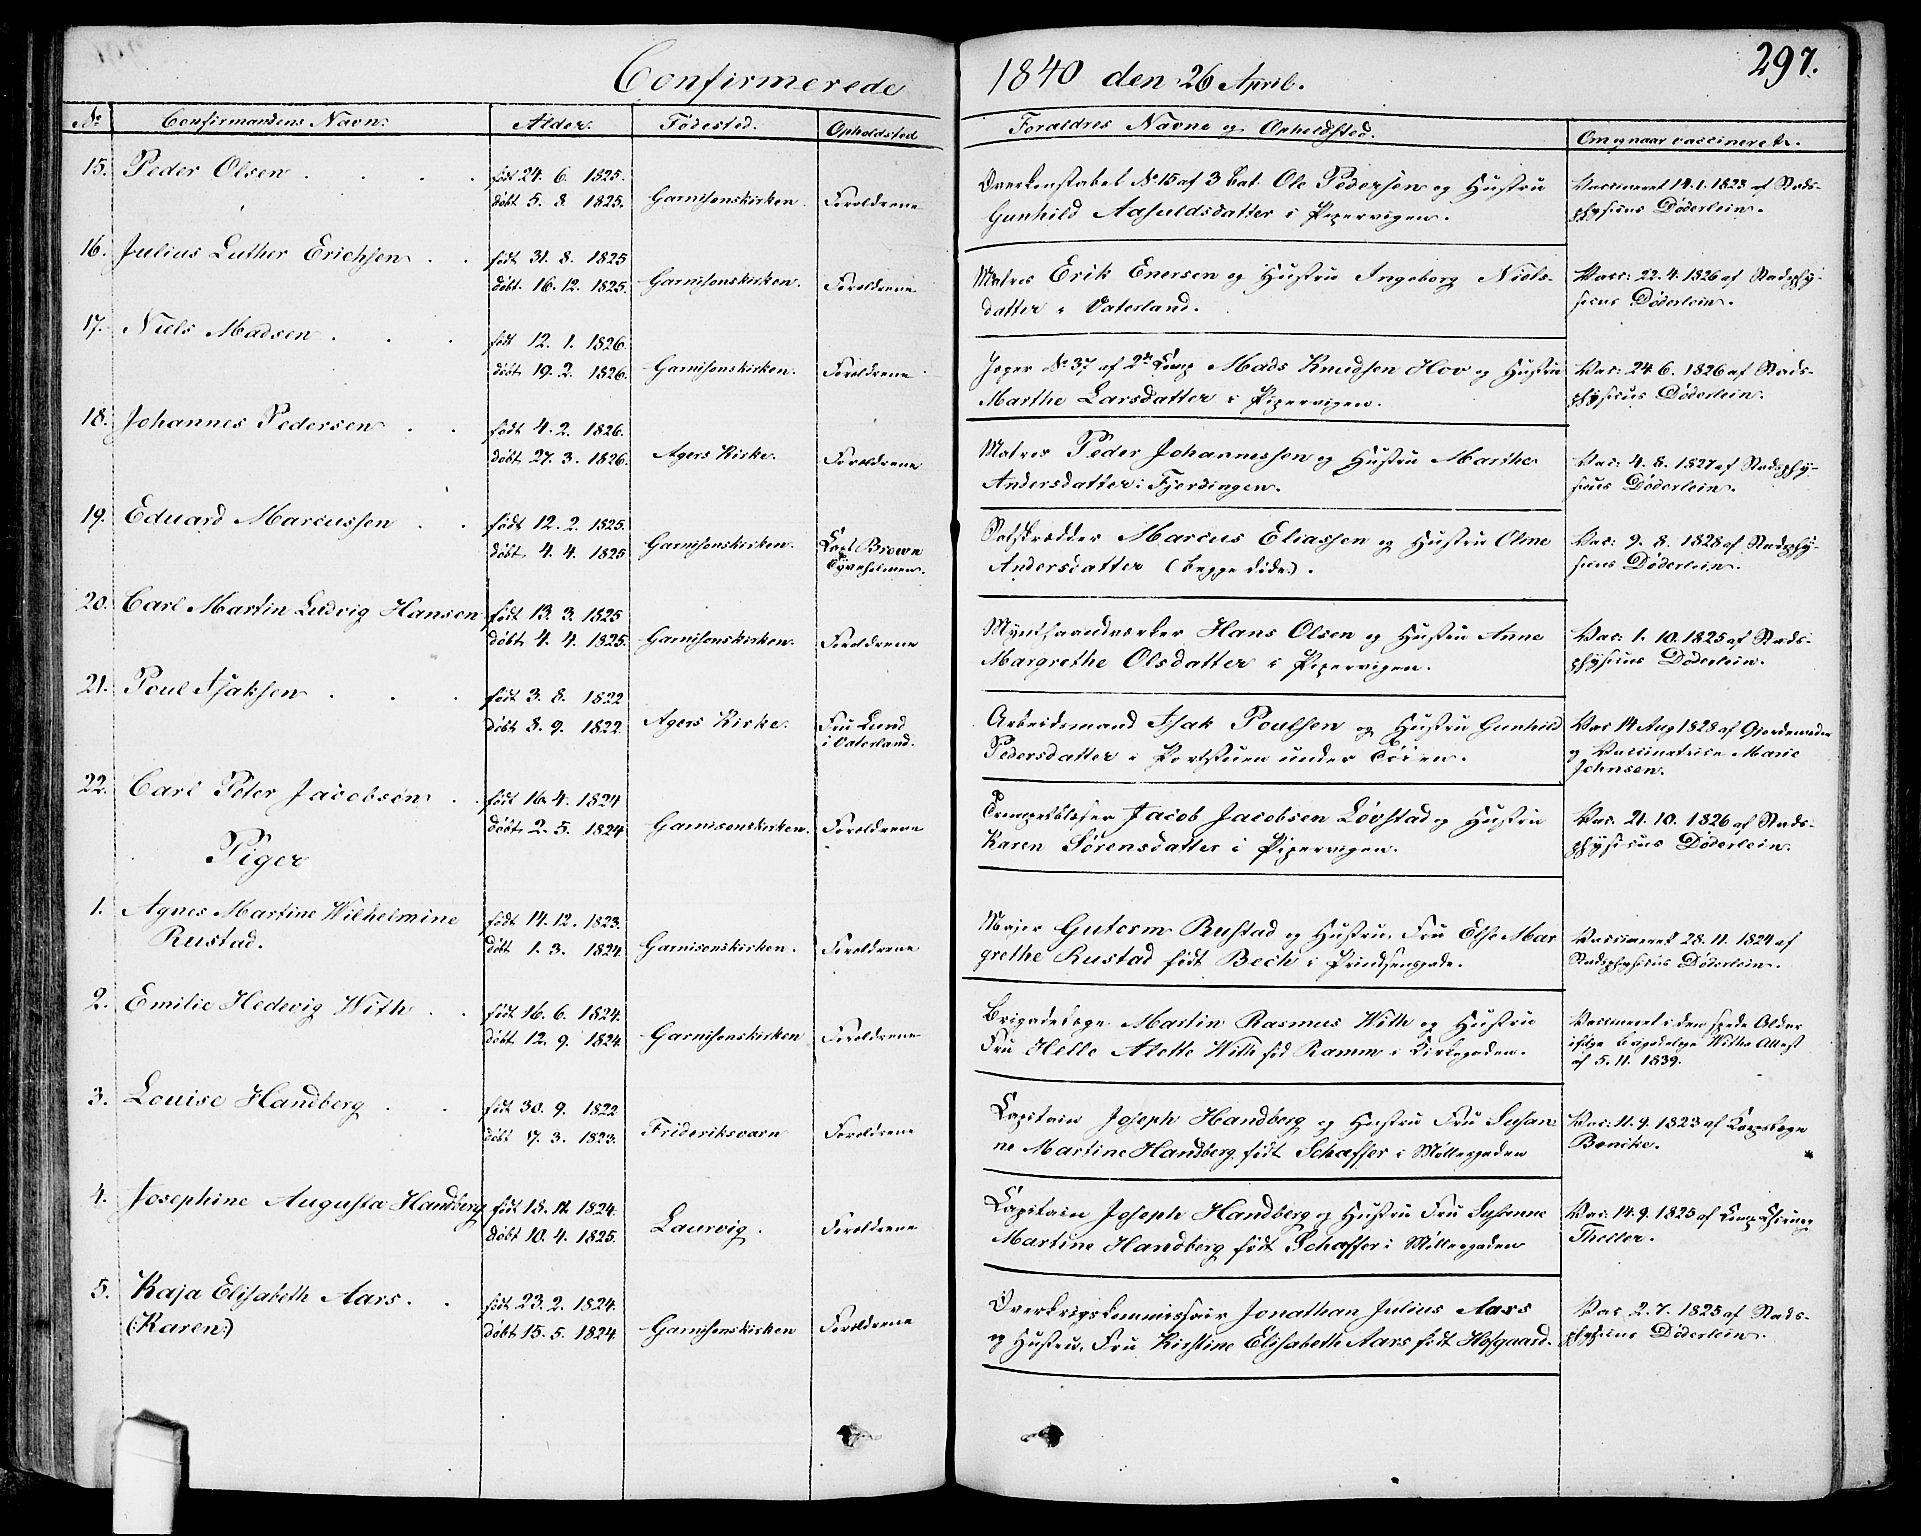 Confirmerede 1840 den 26 April. 297.
No Confirmandens Navn. Alder. Fødested. Opholdssted Forældres Navne og Opholdssted. Om og naar vaccineret.
15. Peder Olsen . . . . født 24. 6. 1825.
døbt 5. 8. 1825. Garnisonskirken. Forældrene
No 15 af 3 Bat. Ole Pedersen og Hustru
Gunhild i Pipervigen.
Vaccineret 14. 1. 1823 af Stads-
physicus Døderlein.
16. Julius Luther Erichsen . . født 31. 8. 1825
døbt 16. 12. 1825. Garnisonskirken. Forældrene
Matros Erik Enersen og Hustru Ingeborg Niels-
datter i Vaterland.
Vacc: 22. 4. 1826 af Stadsphy-
sicus Døderlein.
17. Niels Madsen . . . født 12. 1. 1826.
døbt 19. 2. 1826. Garnisonskirken. Forældrene
Jæger No 37 af 2den Comp Mads Knudsen Hov og Hustru
Marthe Larsdatter i Pipervigen.
Vac: 24. 6. 1826 af Stads-
physicus Døderlein.
18. Johannes Pedersen . . født 4. 2. 1826.
døbt 27. 3. 1826. Agers Kirke. Forældrene
Matros Peder Johannessen og Hustru Marthe
Andersdatter i Fjerdingen.
Vac: 4. 8. 1827 af Stadsphy-
sicus Døderlein.
19. Eduard Marcussen . . født 12. 2. 1825.
døbt 4. 4. 1825 Garnisonskirken. Capt Brown
Tyveholmen.
Marcus Eliassen og Hustru Oline
Andersdatter (begge døde).
Vac: 9. 8. 1828 af Stadsphy-
sicus Døderlein.
20. Carl Martin Ludvig Hansen født 13. 3. 1825
døbt 4. 4. 1825. Garnisonskirken. Forældrene
Hans Olsen og Hustru Anne
Margrethe Olsdatter i Pipervigen.
Vac: 1. 10. 1825 af Stads-
physicus Døderlein.
21. Poul Isaksen . . . født 3. 8. 1822
døbt 8. 9. 1822. Agers Kirke. Fru Lund
i Vaterland.
Arbeidsmand Isak Poulsen og Hustru Gunhild
Pedersdatter i Portstuen under Tøien.
Vac 14 Aug 1828 af Gjordemoder
og Vaccinatrice Marie
Johnsen.
22. Carl Peter Jacobsen . . født 16. 4. 1824
døbt 2. 5. 1824 Garnisonskirken. Forældrene
Trompetblæser Jacob Jacobsen Løvstad og Hustru
Karen Sørensdatter i Pipervigen.
Vac. 21. 10. 1826 af Stads-
physicus Døderlein.
Piger
1. Agnes Martine Wilhelmine
Rustad.
født 14. 12. 1823.
døbt 1. 3. 1824. Garnisonskirken. Forældrene
Major Gutorm Rustad og Hustru Fru Else Mar
grethe Rustad født Bech i Prindsensgade.
Vaccineret 28. 11. 1824 af
Stadsphysicus Døderlein.
2. Emilie Hedevig With . . født 16. 6. 1824.
døbt 12. 9. 1824. Garnisonskirken Forældrene
Brigadelæge Martin Rasmus With og Hustru
Fru Helle Alette With fød Ramm i Kirkegaden.
Vaccineret i den spæde Alder
ifølge Brigadelæge Withs Attest
af 5. 11. 1839.
3. Louise Handberg . . født 30. 9. 1822
døbt 7. 3. 1823. Frideriksværn Forældrene
Capitain Joseph Handberg og Hustru Fru Susan
ne Martine Handberg født Schæffer i Møllergaden
Vac: 11. 9. 1823 af Corpslæge
Bencke.
4. Josephine Augusta Handberg født 18. 11. 1824.
døbt 10. 4. 1825. Laurvig. Forældrene
Capitain Joseph Handberg og Hustru Fru Susanne
Martine Handberg født Schæffer i Møllergaden
Vac: 14. 9. 1825 af
Theller.
5. Kaja Elisabeth Aars. .
(Karen)
født 23. 2. 1824.
døbt 15. 5. 1824. Garnisonskirken Forældrene
Overkrigskommissair Jonathan Julius Aars
og Hustru, Fru Kirstine Elisabeth Aars født Hofgaard.
Vac 2. 7. 1825 af Stads-
physicus Døderlein.